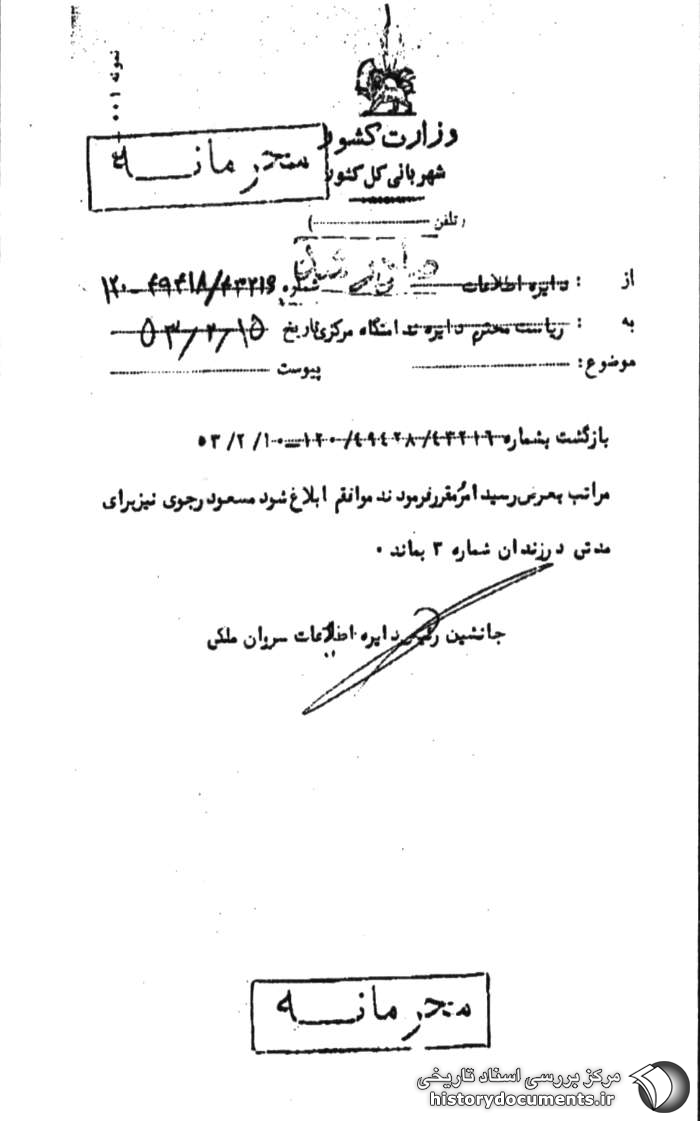 نمونه ۰۰۱
وزارت کشور
محرمانه
شهربانی کل کشور
(تلفن)
صادر شد
از : دایره اطلاعات شماره ۱۲۰-۴۹۴۱۸/۴۳۲۱۶
به : ریاست محترم دایره ندامتگاه مرکزی تاریخ ۵۳/۲/۱۵
موضوع: پیوست
بازگشت بشماره ۴۳۲۱۶/۴۹۴۲۸/۱۲۰-۵۳/۲/۱۰
مراتب بعرض رسید امر مقرر فرمودند موافقم ابلاغ شود مسعود رجوی نیز برای
مدتی در زندان شماره ۳ بماند ۰
جانشین رئیس دایره اطلاعات سروان ملکی
محرمانه
مرکز بررسی اسناد تاریخی
historydocuments.ir